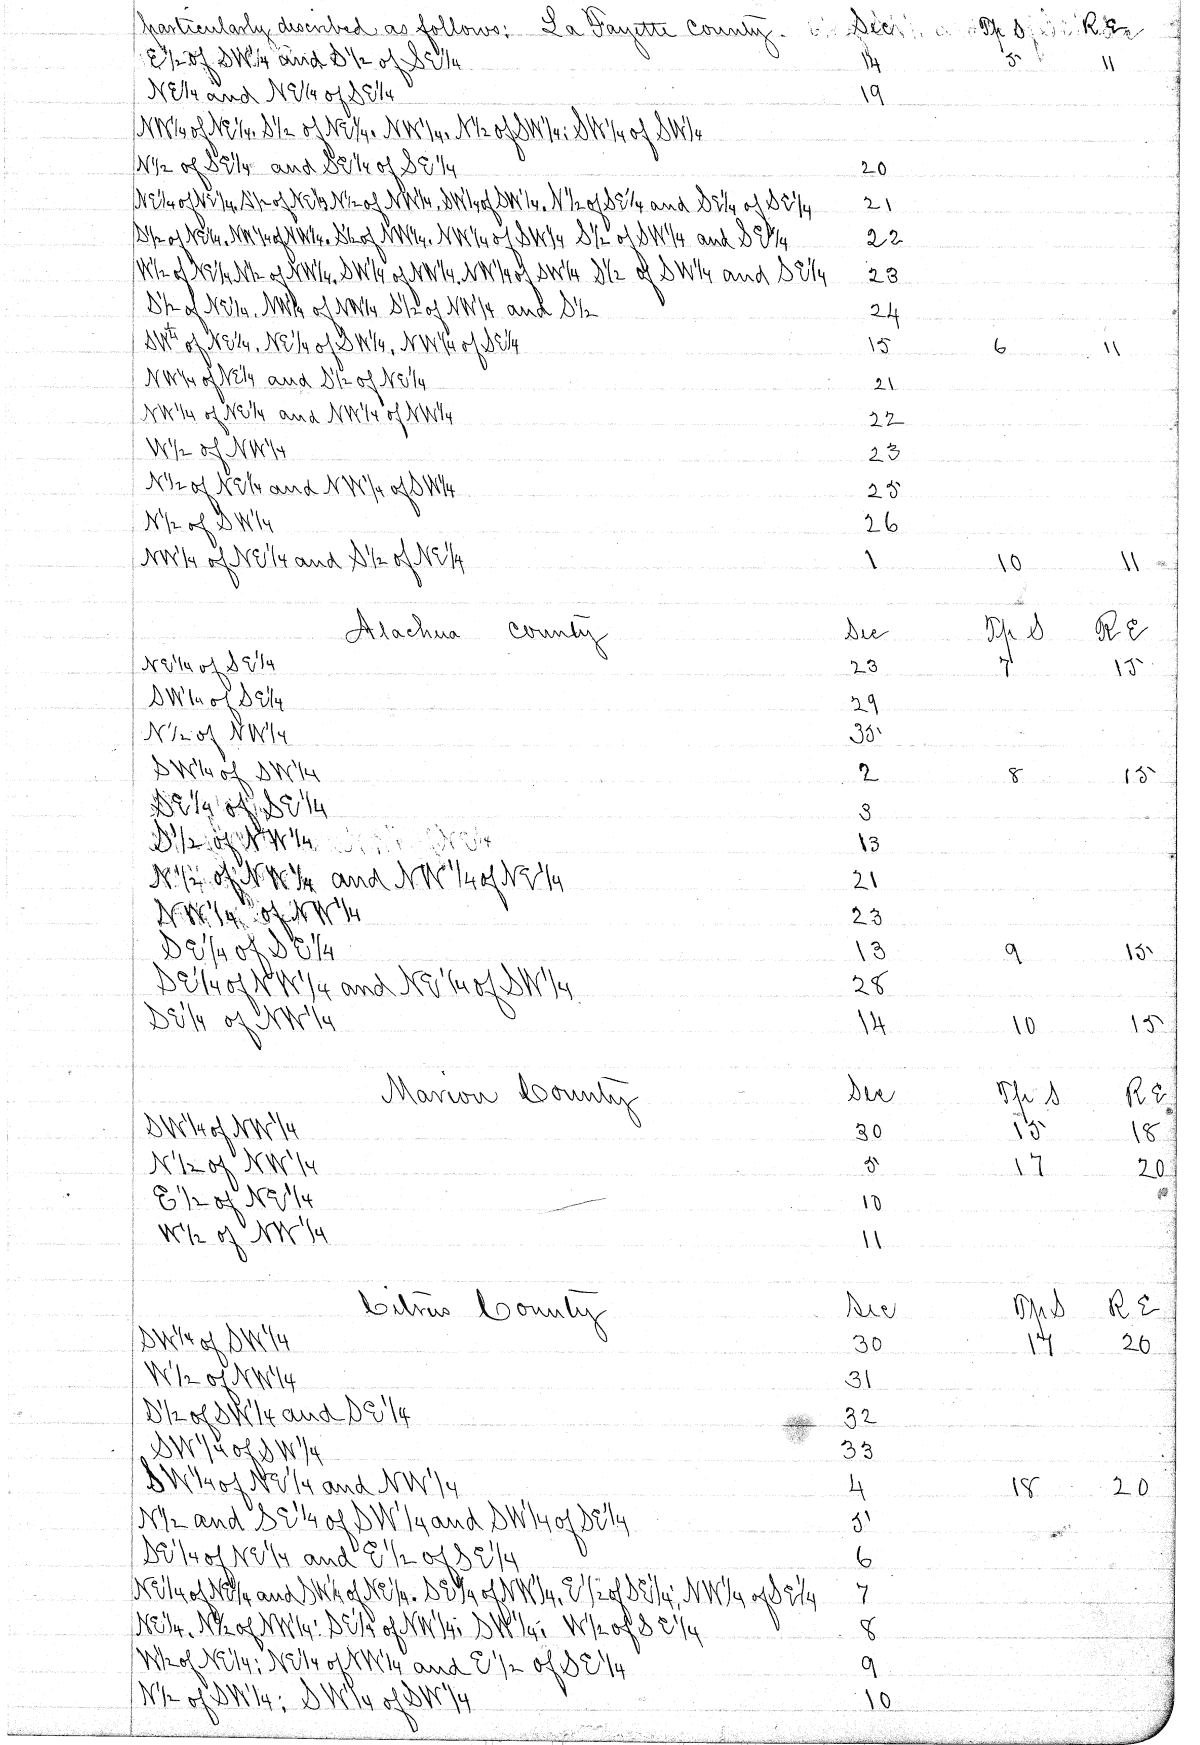 particularly described as follows: La Fayette County. Sec Tp S R E
E1/2 of SW1/4 and S1/2 of SE1/4 14 5 11
NE1/4 and NE1/4 of SE1/4 19
NW1/4 of NE1/4. S1/2 of NE1/4. NW1/4. N1/2 of SW1/4; SW1/4 of SW1/4
N1/2 of SE1/4 and SE1/4 of SE1/4 20
NE1/4 of NE1/4. S1/2 of NE1/4 N1/2 of NW1/4. SW1/4 of SW1/4. N1/2 of SE1/4 and SE1/4 of SE1/4 21
S1/2 of NE1/4. NW1/4 of NW1/4. S1/2 of NW1/4. NW1/4 of SW1/4 S1/2 of SW1/4 and SE1/4 22
W1/2 of NE1/4 N1/2 of NW1/4. SW1/4 of NW1/4. NW1/4 of SW1/4 S1/2 of SW1/4 and SE1/4 23
S1/2 of NE1/4. NW1/4 of NW1/4 S1/2 of NW1/4 and S1/2 24
SW1/4 of NE1/4. NE1/4 of SW1/4. NW1/4 of SE1/4 15 6 11
NW1/4 of NE1/4 and S1/2 of NE1/4 21
NW1/4 of NE1/4 and NW1/4 of NW1/4 22
W1/2 of NW1/4 23
N1/2 of NE1/4 and NW1/4 of SW1/4 25
N1/2 of SW1/4 26
NW1/4 of NE1/4 and S1/2 of NE1/4 1 10 11
Alachua County Sec Tp S R E
NE1/4 of SE1/4 23 7 15
SW1/4 of SE1/4 29
N1/2 of NW1/4 35
SW1/4 of SW1/4 2 8 15
SE1/4 of SE1/4 3
S1/2 of NW1/4 13
N1/2 of NW1/4 and NW1/4 of NE1/4 21
NW1/4 of NW1/4 23
SE1/4 of SE1/4 13 9 15
SE1/4 of NW1/4 and NE1/4 of SW1/4 28
SE1/4 of NW1/4 14 10 15
Marion County Sec Tp S R E
SW1/4 of NW1/4 30 15 18
N1/2 of NW1/4 5 17 20
E1/2 of NE1/4 10
W1/2 of NW1/4 11
Citrus County Sec Tp S R E
SW1/4 of SW1/4 30 17 20
W1/2 of NW1/4 31
S1/2 of SW1/4 and SE1/4 32
SW1/4 of SW1/4 33
SW1/4 of NE1/4 and NW1/4 4 18 20
N1/2 and SE1/4 of SW1/4 and SW1/4 of SE1/4 5
SE1/4 of NE1/4 and E1/2 of SE1/4 6
NE1/4 of NE1/4 and SW1/4 of NE1/4. SE1/4 of NW1/4. E1/2 of SE1/4; NW1/4 of SE1/4 7
NE1/4. N1/2 of NW1/4: SE1/4 of NW1/4; SW1/4; W1/2 of SE1/4 8
W1/2 of NE1/4; NE1/4 of NW1/4 and E1/2 of SE1/4 9
N1/2 of SW1/4; SW1/4 of SW1/4 10